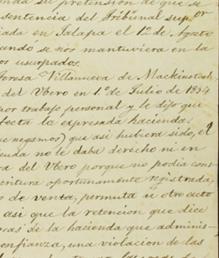 su pretension de que se
sentencia del Tribunal Supor
iada en Jalapa el 12 de Agosto
ando se nos mantuviera en la
os usurpados.
fonsa Villanueva de Mackintosh
del Ubero en 1º de Julio de 1894
por trabajo personal y le dijo que
fecta la espresada hacienda:
negamos) que asi hubiera sido, el
enda no le daba derecho ni en
ra del Ubero porque no podia cons
critura oportunamente registrada,
o de venta, permuta ú otro acto
asi que la retencion que dice
ras de la hacienda que adminis-
confianza, una violacion de las